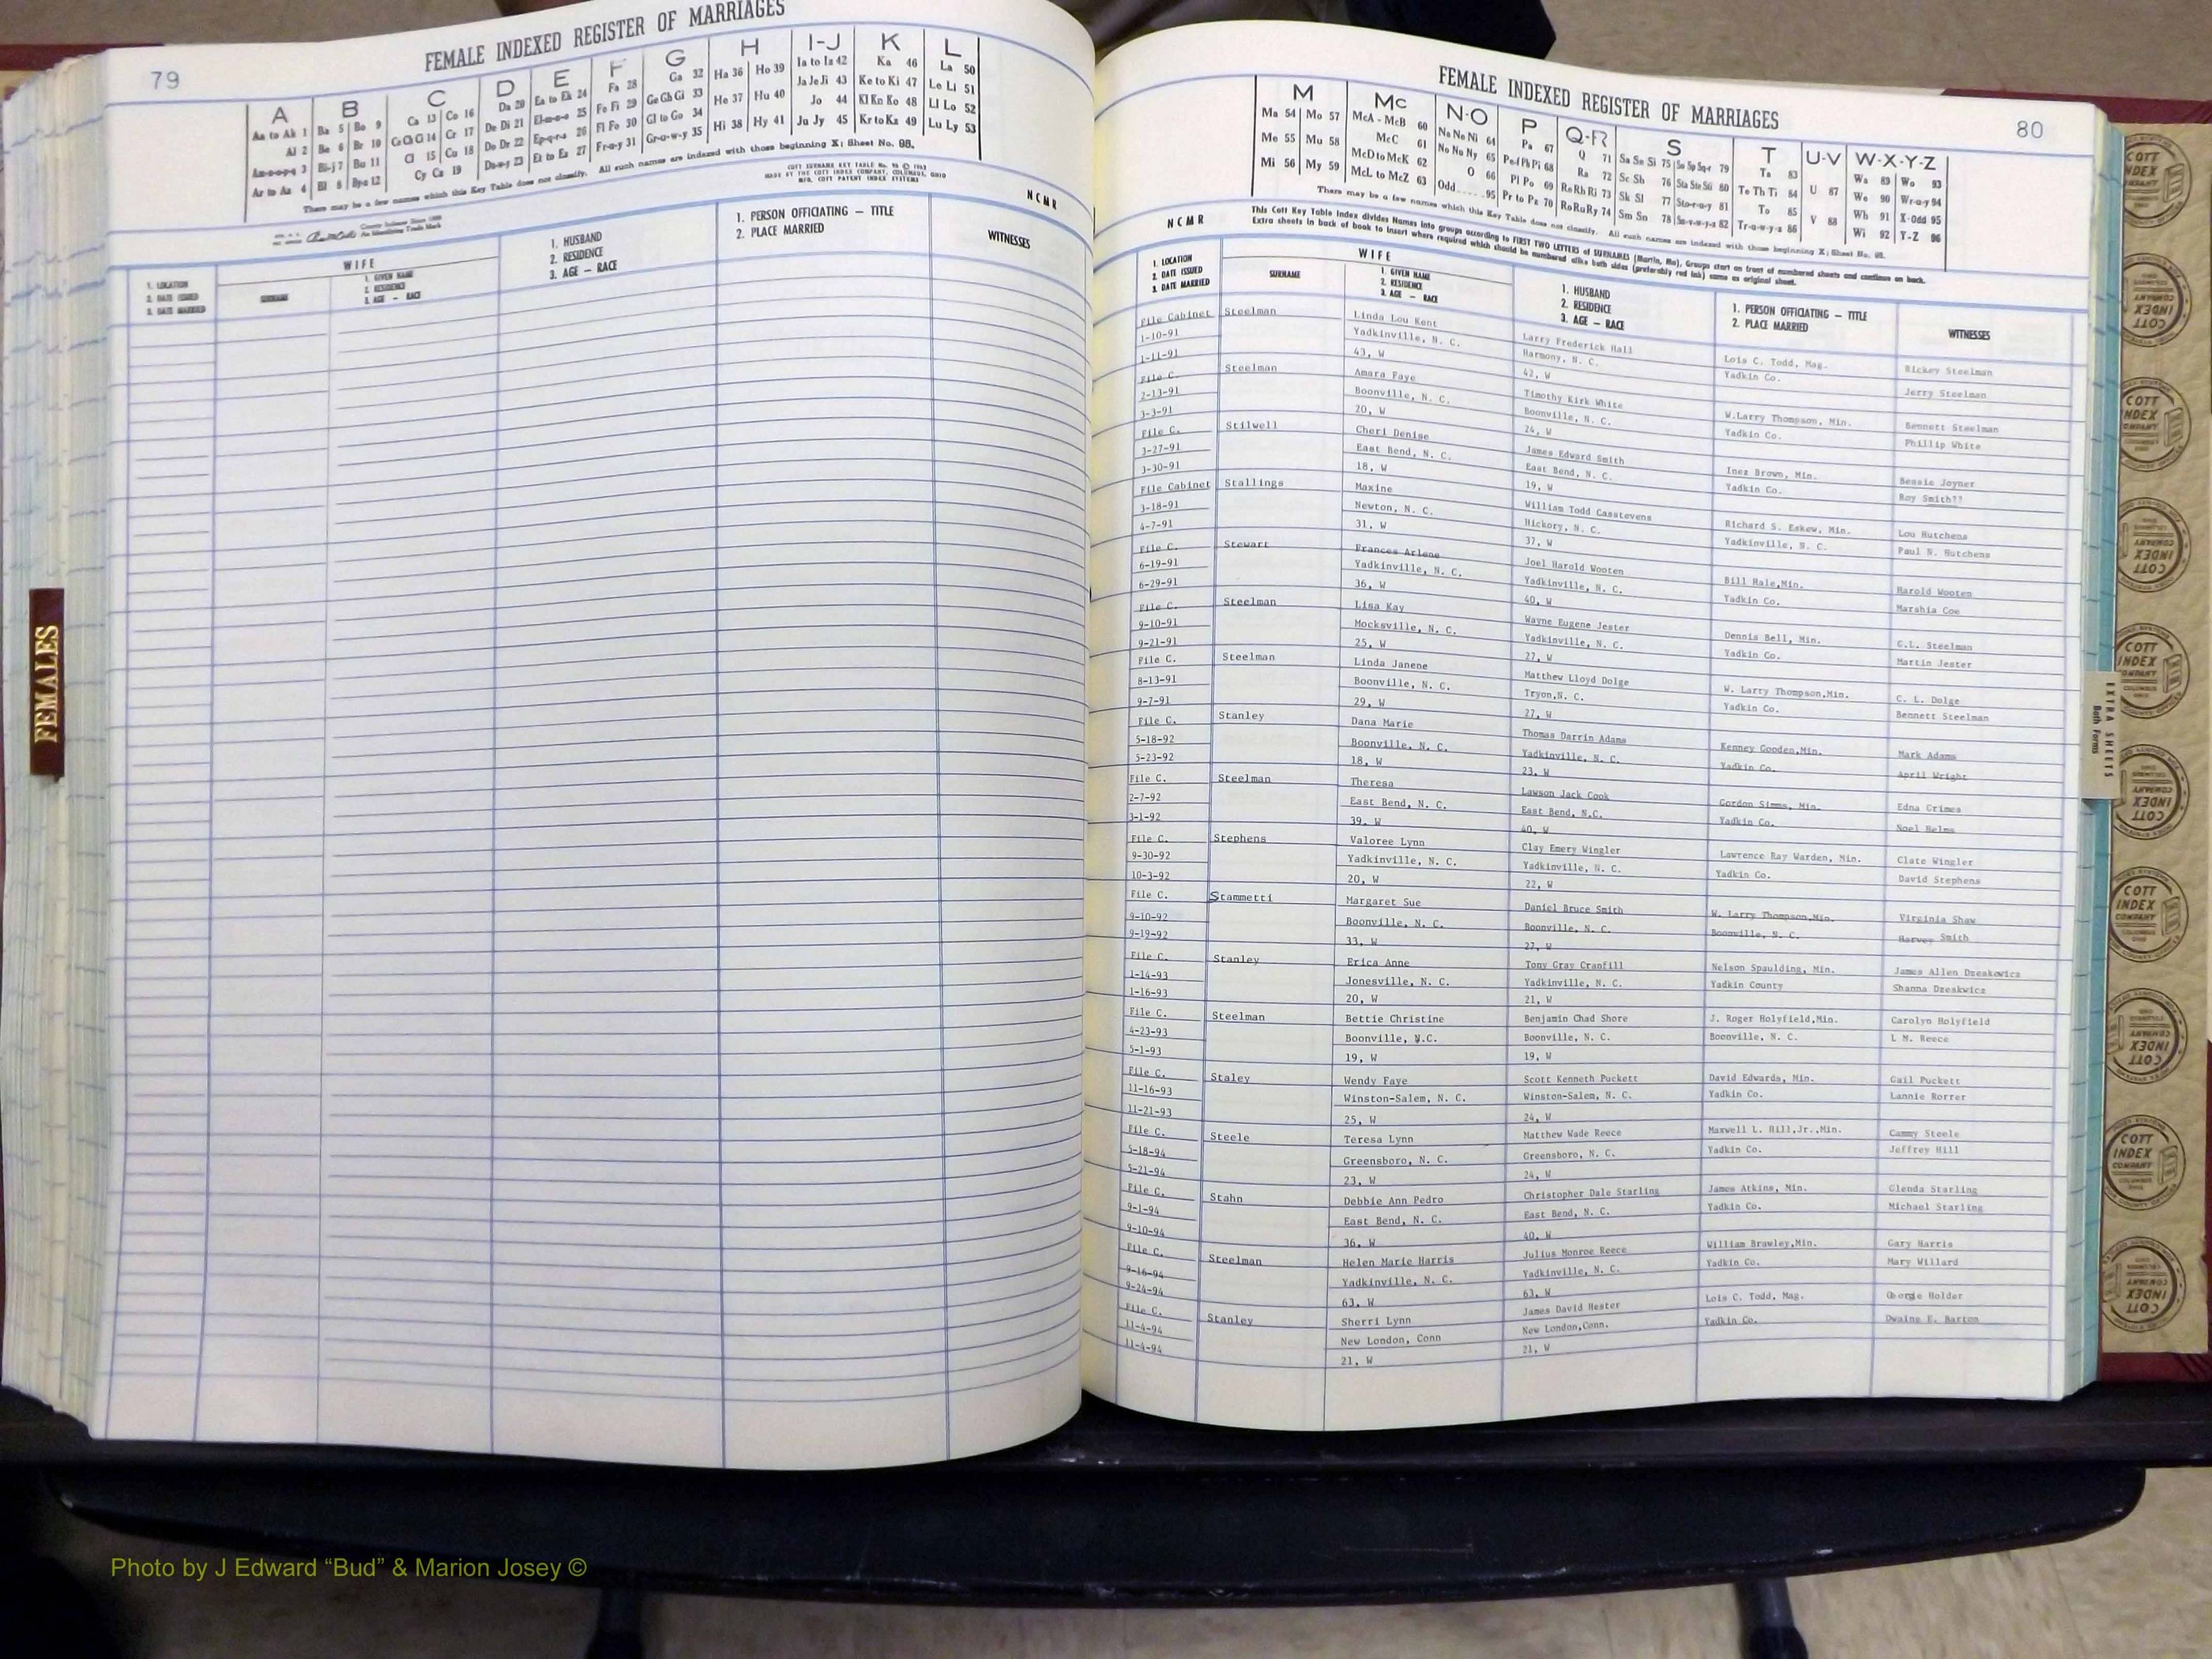 FEMALE INDEXED REGISTER OF MARRIAGES
79
A B C D E F G H I-J K L
Aa to Ak 1 Ba 5 Bo 9 Ca 13 Co 16 Da 20 Ea to Ek 24 Fa 28 Ga 32 Ha 36 Ho 39 Ia to Iz 42 Ka 46 La 50
Al 2 Be 6 Br 10 Ce Ch Ci 14 Cr 17 De Di 21 El-m-n-o 25 Fe Fi 29 Ge Gh Gi 33 He 37 Hu 40 Ja Je Ji 43 Ke to Ki 47 Le Li 51
Am-n-o-p-q 3 Bi-j 7 Bu 11 Cl 15 Cu 18 Do Dr 22 Ep-q-r-s 26 Fl Fo 30 Gl to Go 34 Hi 38 Hy 41 Jo 44 Kl Kn Ko 48 Ll Lo 52
Ar to Az 4 Bl 8 By-z 12 Cy Cz 19 Du-w-y 23 Et to Ez 27 Fr-u-y 31 Gr-u-w-y 35 Ju Jy 45 Kr to Kz 49 Lu Ly 53
There may be a few names which this Key Table does not classify. All such names are indexed with those beginning X; Sheet No. 95.
MADE BY THE COTT INDEX COMPANY, COLUMBUS, OHIO
MFG. COTT PATENT INDEX SYSTEMS
County Indexes Since 1888
An Identifying Trade Mark
N C M R
1. LOCATION
2. DATE ISSUED
3. DATE MARRIED
WIFE
SURNAME
1. GIVEN NAME
2. RESIDENCE
3. AGE — RACE
1. HUSBAND
2. RESIDENCE
3. AGE — RACE
1. PERSON OFFICIATING — TITLE
2. PLACE MARRIED
WITNESSES
FEMALES
FEMALE INDEXED REGISTER OF MARRIAGES
80
M Mc N-O P Q-R S T U-V W-X-Y-Z
Ma 54 Mo 57 McA - McB 60 Na Ne Ni 64 Pa 67 Q 71 Sa Se Si 75 So Sp Sq-r 79 Ta 83 U 87 Wa 89 Wo 93
Me 55 Mu 58 McC 61 No Nu Ny 65 Pe-f Ph Pi 68 Ra 72 Sc Sh 76 Sta Ste Sti 80 Te Th Ti 84 V 88 We 90 Wr-u-y 94
Mi 56 My 59 McD to McK 62 O 66 Pl Po 69 Re Rh Ri 73 Sk Sl 77 Sto-r-u-y 81 To 85 Wh 91 X-Odd 95
McL to McZ 63 Odd.....95 Pr to Pz 70 Ro Ru Ry 74 Sm Sn 78 Su-v-w-y-z 82 Tr-u-w-y-z 86 Wi 92 Y-Z 96
There may be a few names which this Key Table does not classify. All such names are indexed with those beginning X; Sheet No. 95.
This Cott Key Table Index divides Names into groups according to FIRST TWO LETTERS of SURNAMES (Martin, Ma), Groups start on front of numbered sheets and continue on back.
Extra sheets in back of book to insert where required which should be numbered alike both sides (preferably red ink) same as original sheet.
N C M R
1. LOCATION
2. DATE ISSUED
3. DATE MARRIED
WIFE
SURNAME
1. GIVEN NAME
2. RESIDENCE
3. AGE — RACE
1. HUSBAND
2. RESIDENCE
3. AGE — RACE
1. PERSON OFFICIATING — TITLE
2. PLACE MARRIED
WITNESSES
File Cabinet Steelman Linda Lou Kent Larry Frederick Hall Lois C. Todd, Mag. Rickey Steelman
1-10-91 Yadkinville, N. C. Harmony, N. C. Yadkin Co. Jerry Steelman
1-11-91 43, W 42, W
File C. Steelman Amara Faye Timothy Kirk White W.Larry Thompson, Min. Bennett Steelman
2-13-91 Boonville, N. C. Boonville, N. C. Yadkin Co. Phillip White
3-3-91 20, W 24, W
File C. Stilwell Cheri Denise James Edward Smith Inez Brown, Min. Bessie Joyner
3-27-91 East Bend, N. C. East Bend, N. C. Yadkin Co. Roy Smith??
3-30-91 18, W 19, W
File Cabinet Stallings Maxine William Todd Casstevens Richard S. Eskew, Min. Lou Hutchens
3-18-91 Newton, N. C. Hickory, N. C. Yadkinville, N. C. Paul N. Hutchens
4-7-91 31, W 37, W
File C. Stewart Frances Arlene Joel Harold Wooten Bill Hale,Min. Harold Wooten
6-19-91 Yadkinville, N. C. Yadkinville, N. C. Yadkin Co. Marshia Coe
6-29-91 36, W 40, W
File C. Steelman Lisa Kay Wayne Eugene Jester Dennis Bell, Min. G.L. Steelman
9-10-91 Mocksville, N. C. Yadkinville, N. C. Yadkin Co. Martin Jester
9-21-91 25, W 27, W
File C. Steelman Linda Janene Matthew Lloyd Dolge W. Larry Thompson,Min. C. L. Dolge
8-13-91 Boonville, N. C. Tryon,N. C. Yadkin Co. Bennett Steelman
9-7-91 29, W 27, W
File C. Stanley Dana Marie Thomas Darrin Adams Kenney Gooden,Min. Mark Adams
5-18-92 Boonville, N. C. Yadkinville, N. C. Yadkin Co. April Wright
5-23-92 18, W 23, W
File C. Steelman Theresa Lawson Jack Cook Gordon Simms, Min. Edna Grimes
2-7-92 East Bend, N. C. East Bend, N.C. Yadkin Co. Noel Helms
3-1-92 39, W 40, W
File C. Stephens Valoree Lynn Clay Emery Wingler Lawrence Ray Warden, Min. Clate Wingler
9-30-92 Yadkinville, N. C. Yadkinville, N. C. Yadkin Co. David Stephens
10-3-92 20, W 22, W
File C. Stammetti Margaret Sue Daniel Bruce Smith W. Larry Thompson,Min. Virginia Shaw
9-10-92 Boonville, N. C. Boonville, N. C. Boonville, N. C. Harvey Smith
9-19-92 33, W 27, W
File C. Stanley Erica Anne Tony Gray Cranfill Nelson Spaulding, Min. James Allen Dzeskowicz
1-14-93 Jonesville, N. C. Yadkinville, N. C. Yadkin County Shanna Dzeskwicz
1-16-93 20, W 21, W
File C. Steelman Bettie Christine Benjamin Chad Shore J. Roger Holyfield,Min. Carolyn Holyfield
4-23-93 Boonville, N.C. Boonville, N. C. Boonville, N. C. L M. Reece
5-1-93 19, W 19, W
File C. Staley Wendy Faye Scott Kenneth Puckett David Edwards, Min. Gail Puckett
11-16-93 Winston-Salem, N. C. Winston-Salem, N. C. Yadkin Co. Lannie Rorrer
11-21-93 25, W 24, W
File C. Steele Teresa Lynn Matthew Wade Reece Maxwell L. Hill,Jr.,Min. Cammy Steele
5-18-94 Greensboro, N. C. Greensboro, N. C. Yadkin Co. Jeffrey Hill
5-21-94 23, W 24, W
File C. Stahn Debbie Ann Pedro Christopher Dale Starling James Atkins, Min. Glenda Starling
9-1-94 East Bend, N. C. East Bend, N. C. Yadkin Co. Michael Starling
9-10-94 36, W 40, W
File C. Steelman Helen Marie Harris Julius Monroe Reece William Brawley,Min. Gary Harris
9-16-94 Yadkinville, N. C. Yadkinville, N. C. Yadkin Co. Mary Willard
9-24-94 63, W 63, W
File C. Stanley Sherri Lynn James David Hester Lois C. Todd, Mag. George Holder
11-4-94 New London, Conn New London,Conn. Yadkin Co. Dwaine E. Barton
11-4-94 21, W 21, W
EXTRA SHEETS
Both Forms
COTT INDEX COMPANY
Photo by J Edward “Bud” & Marion Josey ©